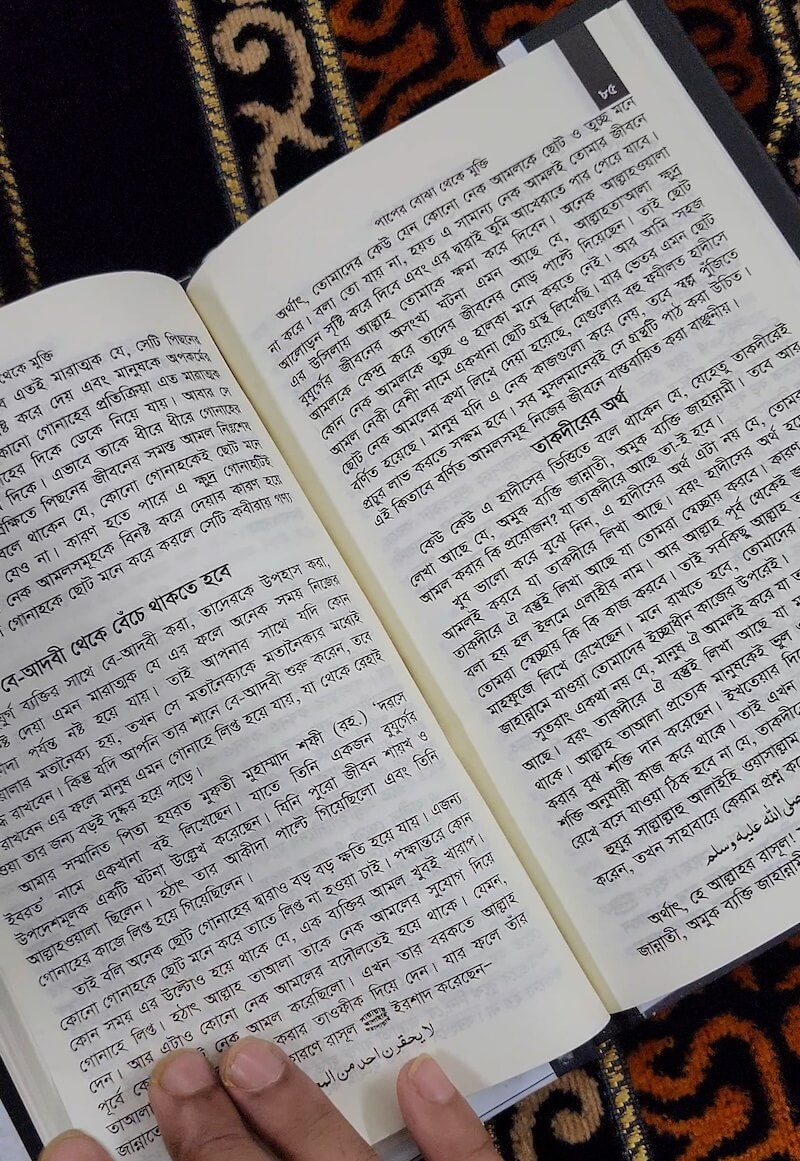 থেকে মুক্তি
এতই মারাত্মক যে, সেটি পিছনের
করে দেয় এবং মানুষকে অপকর্মের
কোনো গোনাহের প্রতিক্রিয়া এত মারাত্মক
দিকে ডেকে নিয়ে যায়। আবার সে
দিকে। এভাবে তাকে ধীরে ধীরে গোনাহের
পিছনের জীবনের সমস্ত আমল নিঃশেষ
থাকেন যে, কোনো গোনাহকেই ছোট মনে
যেও না। কারণ হতে পারে এ ক্ষুদ্র গোনাহটিই
নেক আমলসমূহকে বিনষ্ট করে দেয়ার কারণ হয়ে
গোনাহকে ছোট মনে করে করলে সেটি কবীরায় গণ্য
বে-আদবী থেকে বেঁচে থাকতে হবে
ব্যক্তির সাথে বে-আদবী করা, তাদেরকে উপহাস করা,
দেয়া এমন মারাত্মক যে এর ফলে অনেক সময় নিজের
পর্যন্ত নষ্ট হয়ে যায়। তাই আপনার সাথে যদি কোন
মতানৈক্য হয়, তখন সে মতানৈক্যকে মতানৈক্যর মধ্যেই
রাখবেন। কিন্তু যদি আপনি তার শানে বে-আদবী শুরু করেন, তবে
রাখবেন এর ফলে মানুষ এমন গোনাহে লিপ্ত হয়ে যায়, যা থেকে রেহাই
তার জন্য বড়ই দুষ্কর হয়ে পড়ে।
আমার সম্মানিত পিতা হযরত মুফতী মুহাম্মাদ শফী (রহ.) ‘দরসে
ইবরত’ নামে একখানা বই লিখেছেন। যাতে তিনি একজন বুযুর্গের
উপদেশমূলক একটি ঘটনা উল্লেখ করেছেন। যিনি পুরো জীবন শায়খ ও
আল্লাহওয়ালা ছিলেন। হঠাৎ তার আকীদা পাল্টে গিয়েছিলো এবং তিনি
গোনাহের কাজে লিপ্ত হয়ে গিয়েছিলেন।
তাই বলি অনেক ছোট গোনাহের দ্বারাও বড় বড় ক্ষতি হয়ে যায়। এজন্য
কোনো গোনাহকে ছোট মনে করে তাতে লিপ্ত না হওয়া চাই। পক্ষান্তরে কোন
কোন সময় এর উল্টোও হয়ে থাকে যে, এক ব্যক্তির আমল খুবই খারাপ।
গোনাহে লিপ্ত। হঠাৎ আল্লাহ তাআলা তাকে নেক আমলের সুযোগ দিয়ে
দেন। আর এটাও কোনো নেক আমলের বদৌলতেই হয়ে থাকে। যেমন,
পূর্বে নেক আমল করেছিলো। এখন তার বরকতে আল্লাহ
তাআলা করার তাওফীক দিয়ে দেন। যার ফলে তাঁর
জান্নাতে রাসূল ইরশাদ করেছেন-
لا يحقرن احد من
৮৫
পাপের বোঝা থেকে মুক্তি
অর্থাৎ, তোমাদের কেউ যেন কোনো নেক আমলকে ছোট ও তুচ্ছ মনে
না করে। বলা তো যায় না, হয়ত এ সামান্য নেক আমলই তোমার জীবনে
আলোড়ন সৃষ্টি করে দিবে এবং এর দ্বারাই তুমি আখেরাতে পার পেয়ে যাবে।
এর উসিলায় আল্লাহ তোমাকে ক্ষমা করে দিবেন। অনেক আল্লাহওয়ালা
বুযুর্গের জীবনের অসংখ্য ঘটনা এমন আছে যে, আল্লাহতাআলা ক্ষুদ্র
আমলকে কেন্দ্র করে তাদের জীবনের মোড় পাল্টে দিয়েছেন। তাই ছোট
কোন নেক আমলকে তুচ্ছ ও হালকা মনে করতে নেই। আর আমি সহজ
আমল নেকী বেশী নামে একখানা ছোট গ্রন্থ লিখেছি। যার ভেতর এমন ছোট
ছোট নেক আমলের কথা লিখে দেয়া হয়েছে, যেগুলোর বহু ফযীলত হাদীসে
বর্ণিত হয়েছে। মানুষ যদি এ নেক কাজগুলো করে নেয়, তবে স্বল্প পুঁজিতে
প্রচুর লাভ করতে সক্ষম হবে। সব মুসলমানেরই সে গ্রন্থটি পাঠ করা উচিত।
এই কিতাবে বর্ণিত আমলসমূহ নিজের জীবনে বাস্তবায়িত করা বাঞ্ছনীয়।
তাকদীরের অর্থ
কেউ কেউ এ হাদীসের ভিত্তিতে বলে থাকেন যে, যেহেতু তাকদীরেই
লেখা আছে যে, অমুক ব্যক্তি জান্নাতী, অমুক ব্যক্তি জাহান্নামী। তবে আর
আমল করার কি প্রয়োজন? যা তাকদীরে আছে তা-ই হবে।
খুব ভালো করে বুঝে নিন, এ হাদীসের অর্থ এটা নয় যে,
আমলই করবে যা তাকদীরে লিখা আছে। বরং হাদীসের অর্থ
তাকদীরে ঐ বস্তুই লিখা আছে যা তোমরা স্বেচ্ছায় করবে। কারণ
বলা হয় হল ইলমে এলাহীর নাম। আর আল্লাহ পূর্ব থেকেই
তোমরা স্বেচ্ছায় কি কি কাজ করবে। তাই সবকিছু আল্লাহ
মাহফুজে লিখে রেখেছেন। মনে রাখতে হবে, তোমাদের
জাহান্নামে যাওয়া তোমাদের ইচ্ছাধীন কাজের উপরেই।
সুতরাং একথা নয় যে, মানুষ ঐ আমলই করে যা
আছে। বরং তাকদীরে ঐ বস্তুই লিখা আছে যা
থাকে। আল্লাহ তাআলা প্রত্যেক মানুষকেই ভুল
করার বুঝ শক্তি দান করেছেন। ইখতেয়ার
শক্তি অনুযায়ী কাজ করে থাকে। তাই এখন
রেখে বসে যাওয়া ঠিক হবে না যে, তাকদীরে
হুযুর সাল্লাল্লাহু আলাইহি ওয়াসাল্লাম
করেন, তখন সাহাবায়ে কেরাম প্রশ্ন
صلى الله عليه وسلم
অর্থাৎ, হে আল্লাহর রাসূল!
জান্নাতী, অমুক ব্যক্তি জাহান্নামী